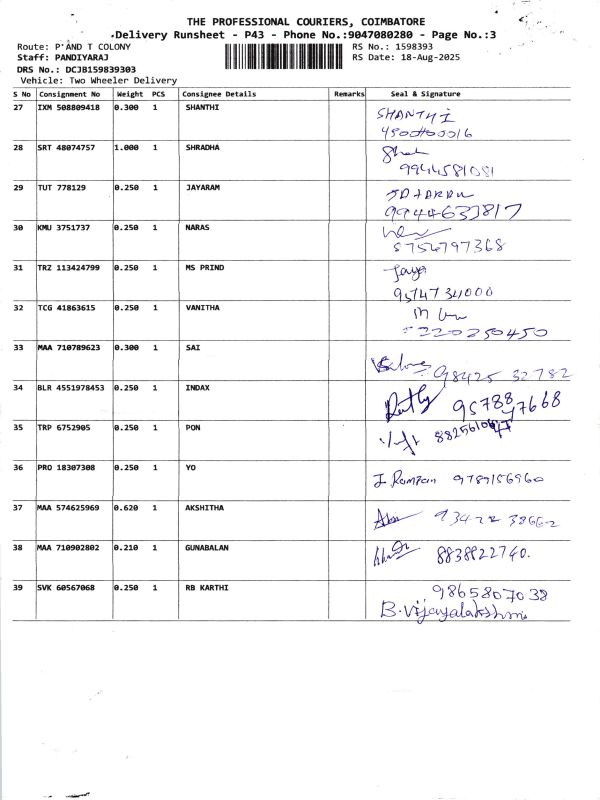 THE PROFESSIONAL COURIERS, COIMBATORE
Delivery Runsheet - P43 - Phone No.:9047080280 - Page No.:3
Route: P AND T COLONY RS No.: 1598393
Staff: PANDIYARAJ RS Date: 18-Aug-2025
DRS No.: DCJB159839303
Vehicle: Two Wheeler Delivery
S No Consignment No Weight PCS Consignee Details Remarks Seal & Signature
27 IXM 508809418 0.300 1 SHANTHI SHANTHI
28 SRT 48074757 1.000 1 SHRADHA
9944581081
29 TUT 778129 0.250 1 JAYARAM
9944637817
30 KMU 3751737 0.250 1 NARAS
31 TRZ 113424799 0.250 1 MS PRIND Jaya
32 TCG 41863615 0.250 1 VANITHA
33 MAA 710789623 0.300 1 SAI
98425 32782
34 BLR 4551978453 0.250 1 INDAX
95788 47668
35 TRP 6752905 0.250 1 PON
36 PRO 18307308 0.250 1 YO
9789156960
37 MAA 574625969 0.620 1 AKSHITHA
38 MAA 710902802 0.210 1 GUNABALAN
8838822740.
39 SVK 60567068 0.250 1 RB KARTHI 9865807038
B.Vijayalakshmi